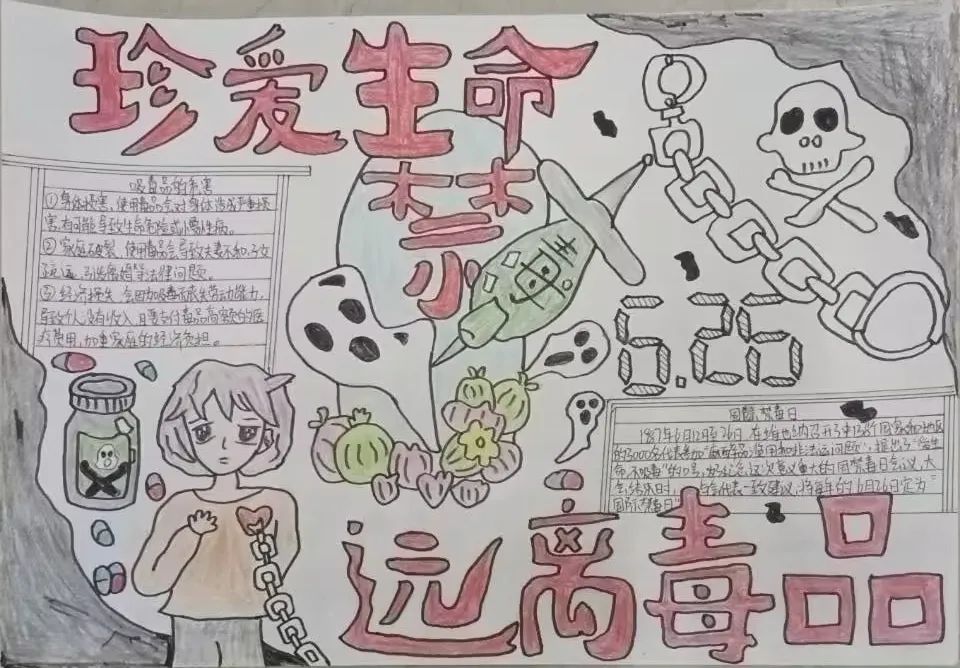 珍爱生命
禁
毒
吸毒品的危害
①身体损害,使用毒品会对身体造成严重损
害,有可能导致生命危险或小慢性病。
②家庭破裂,使用毒品会导致夫妻不和,子女
疏远,引发离婚等法律问题。
③经济损失,会因为吸毒而丧失劳动能力,
导致个人没有收入,且要支付毒品高额的医
疗费用,加重家庭的经济负担。
5.25
国际禁毒日
1987年6月12日至26日,在维也纳召开了由138个国家和地区
的3000名代表参加"麻醉品
命,不吸毒"的口号,
会结束时,代表一致建议,将每年的6月26日定为"
国际禁毒日"
远离毒品